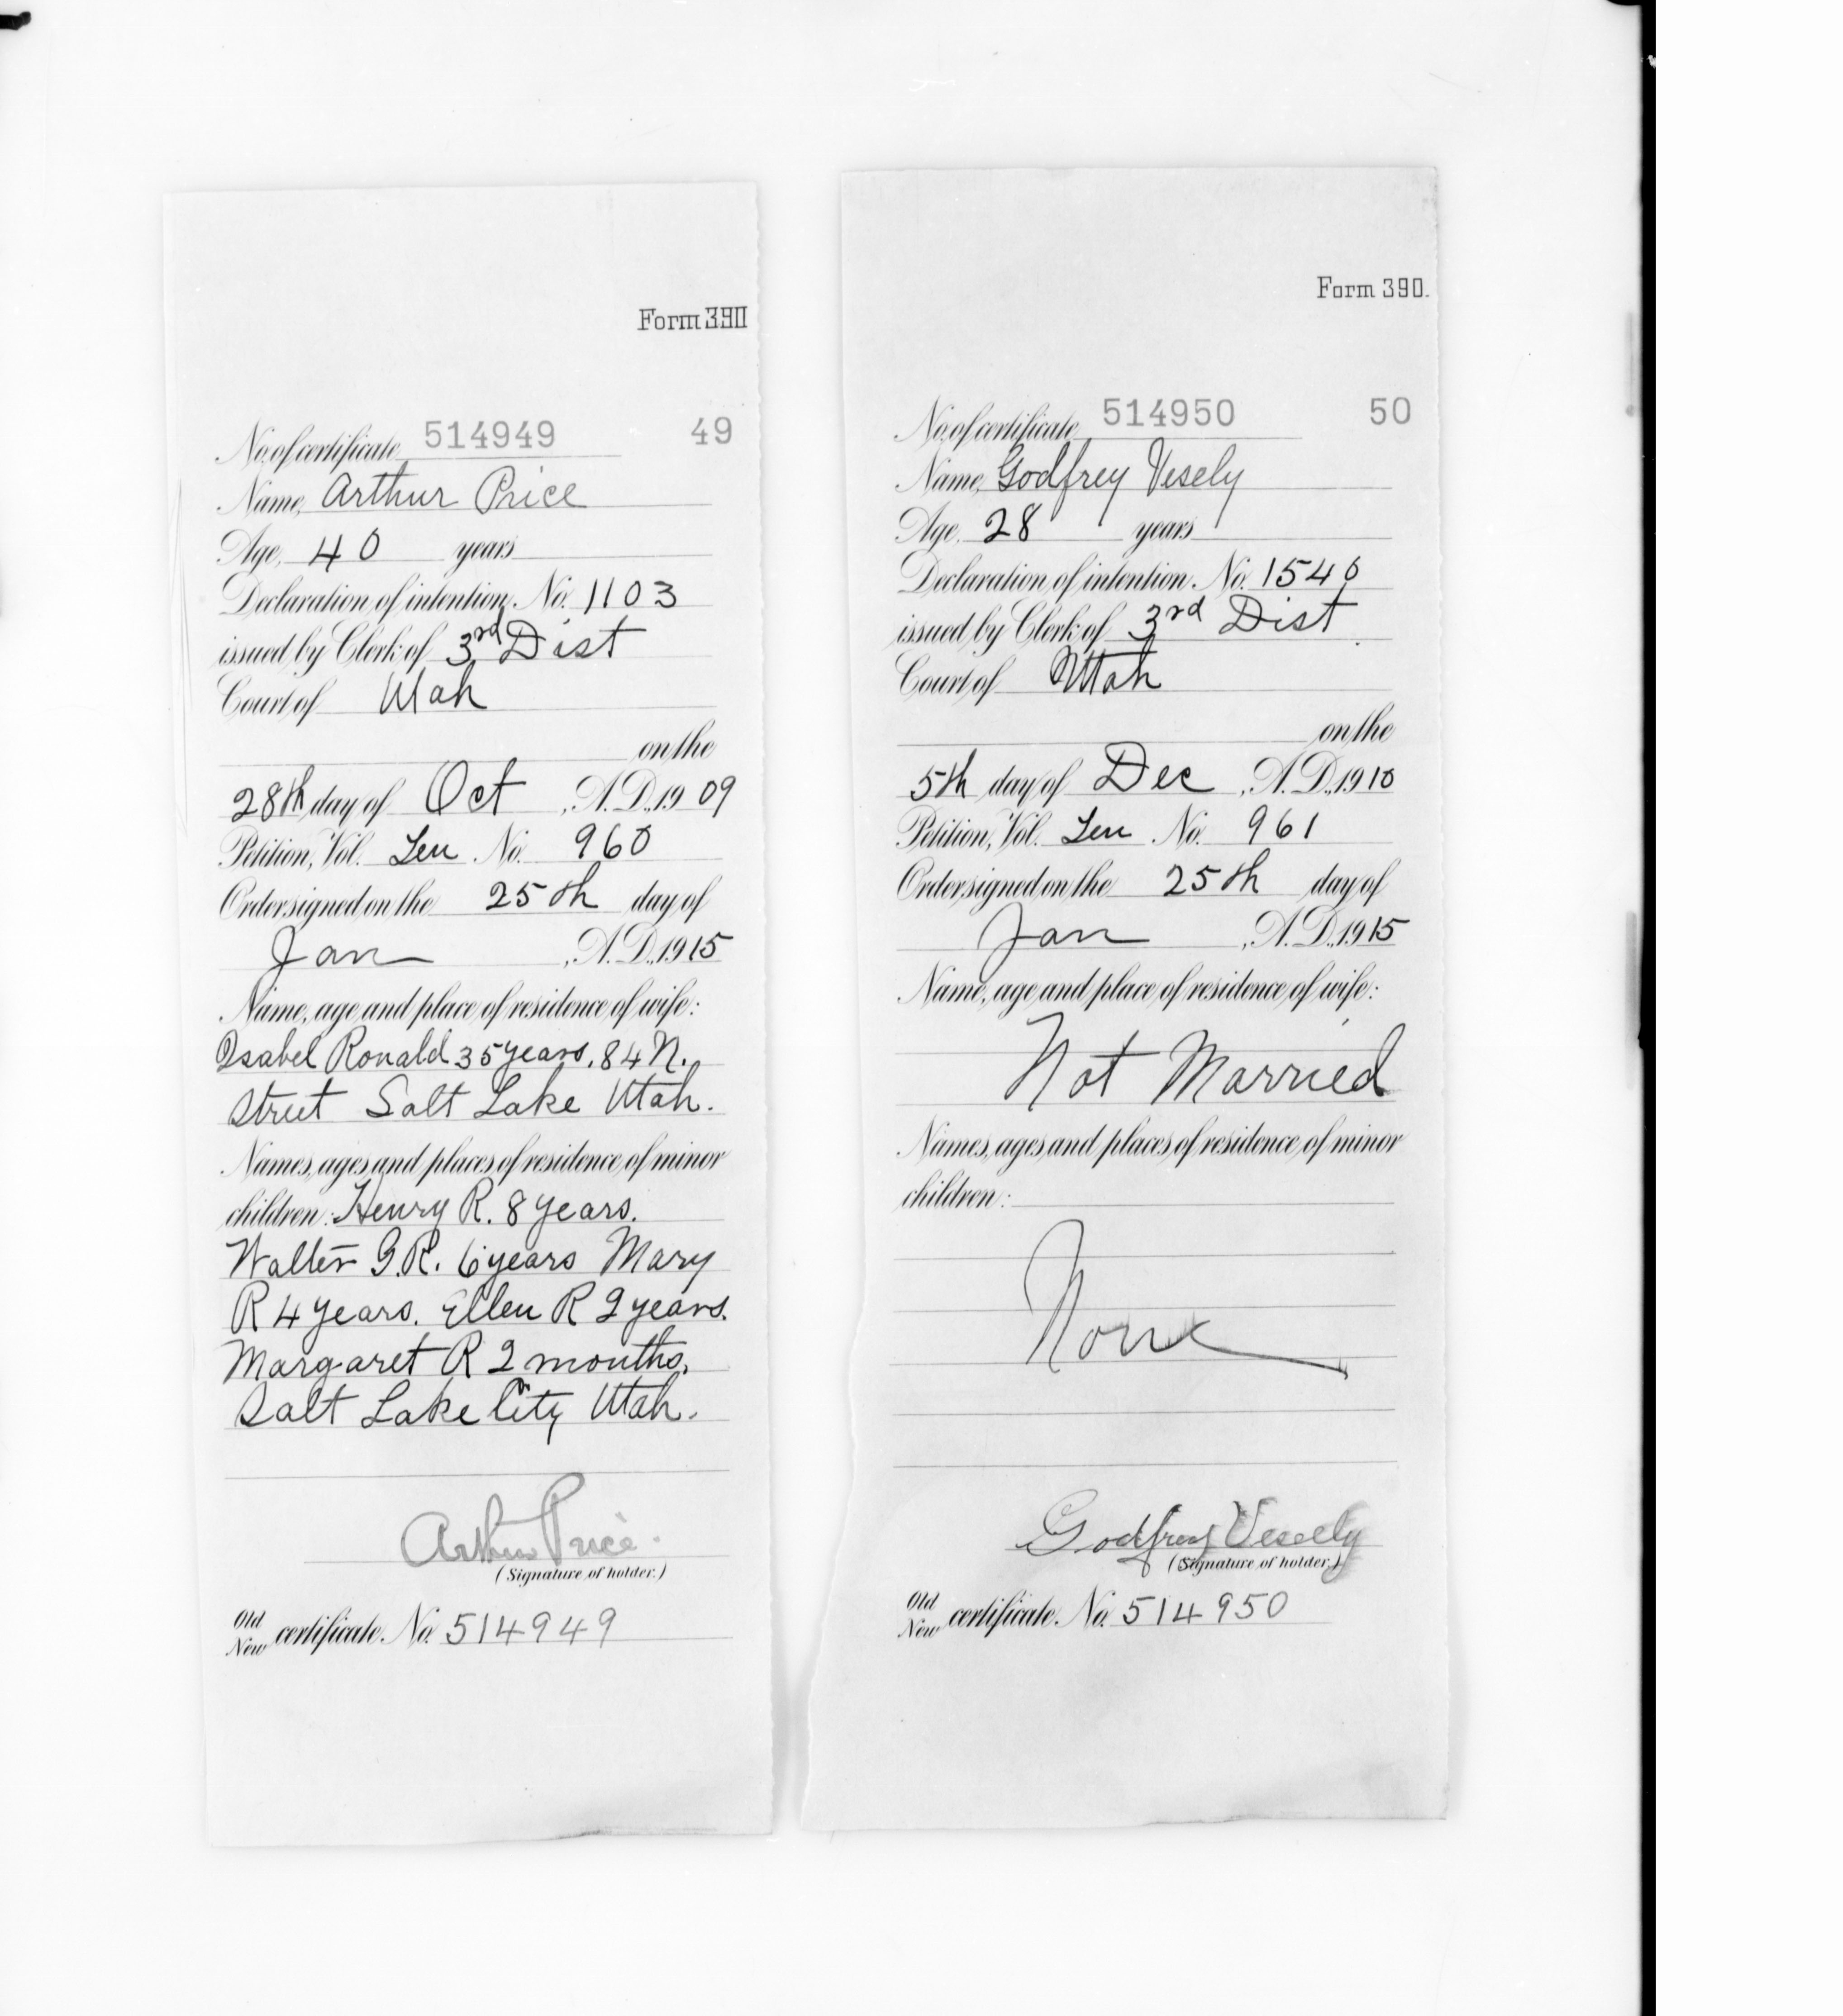 Form 390
No. of certificate 514949 49
Name, Arthur Price
Age, 40 years
Declaration of intention, No. 1103
issued by Clerk of 3rd Dist
Court of Utah
on the
28th day of Oct, A.D., 1909
Petition, Vol. Ten No. 960
Order signed on the 25th day of
Jan, A.D., 1915
Name, age and place of residence of wife:
Isabel Ronald 35 years, 84 N.
Street Salt Lake Utah.
Names, ages and places of residence of minor
children: Henry R. 8 years.
Walter G.R. 6 years Mary
R 4 years. Ellen R 2 years.
Margaret R 2 months,
Salt Lake City Utah.
Arthur Price.
(Signature of holder.)
Old
New certificate. No. 514949
Form 390.
No. of certificate 514950 50
Name, Godfrey Vesely
Age, 28 years
Declaration of intention, No. 1540
issued by Clerk of 3rd Dist
Court of Utah
on the
5th day of Dec, A.D., 1910
Petition, Vol. Ten No. 961
Order signed on the 25th day of
Jan, A.D., 1915
Name, age and place of residence of wife:
Not Married
Names, ages and places of residence of minor
children:
None
Godfrey Vesely
(Signature of holder.)
Old
New certificate. No. 514950